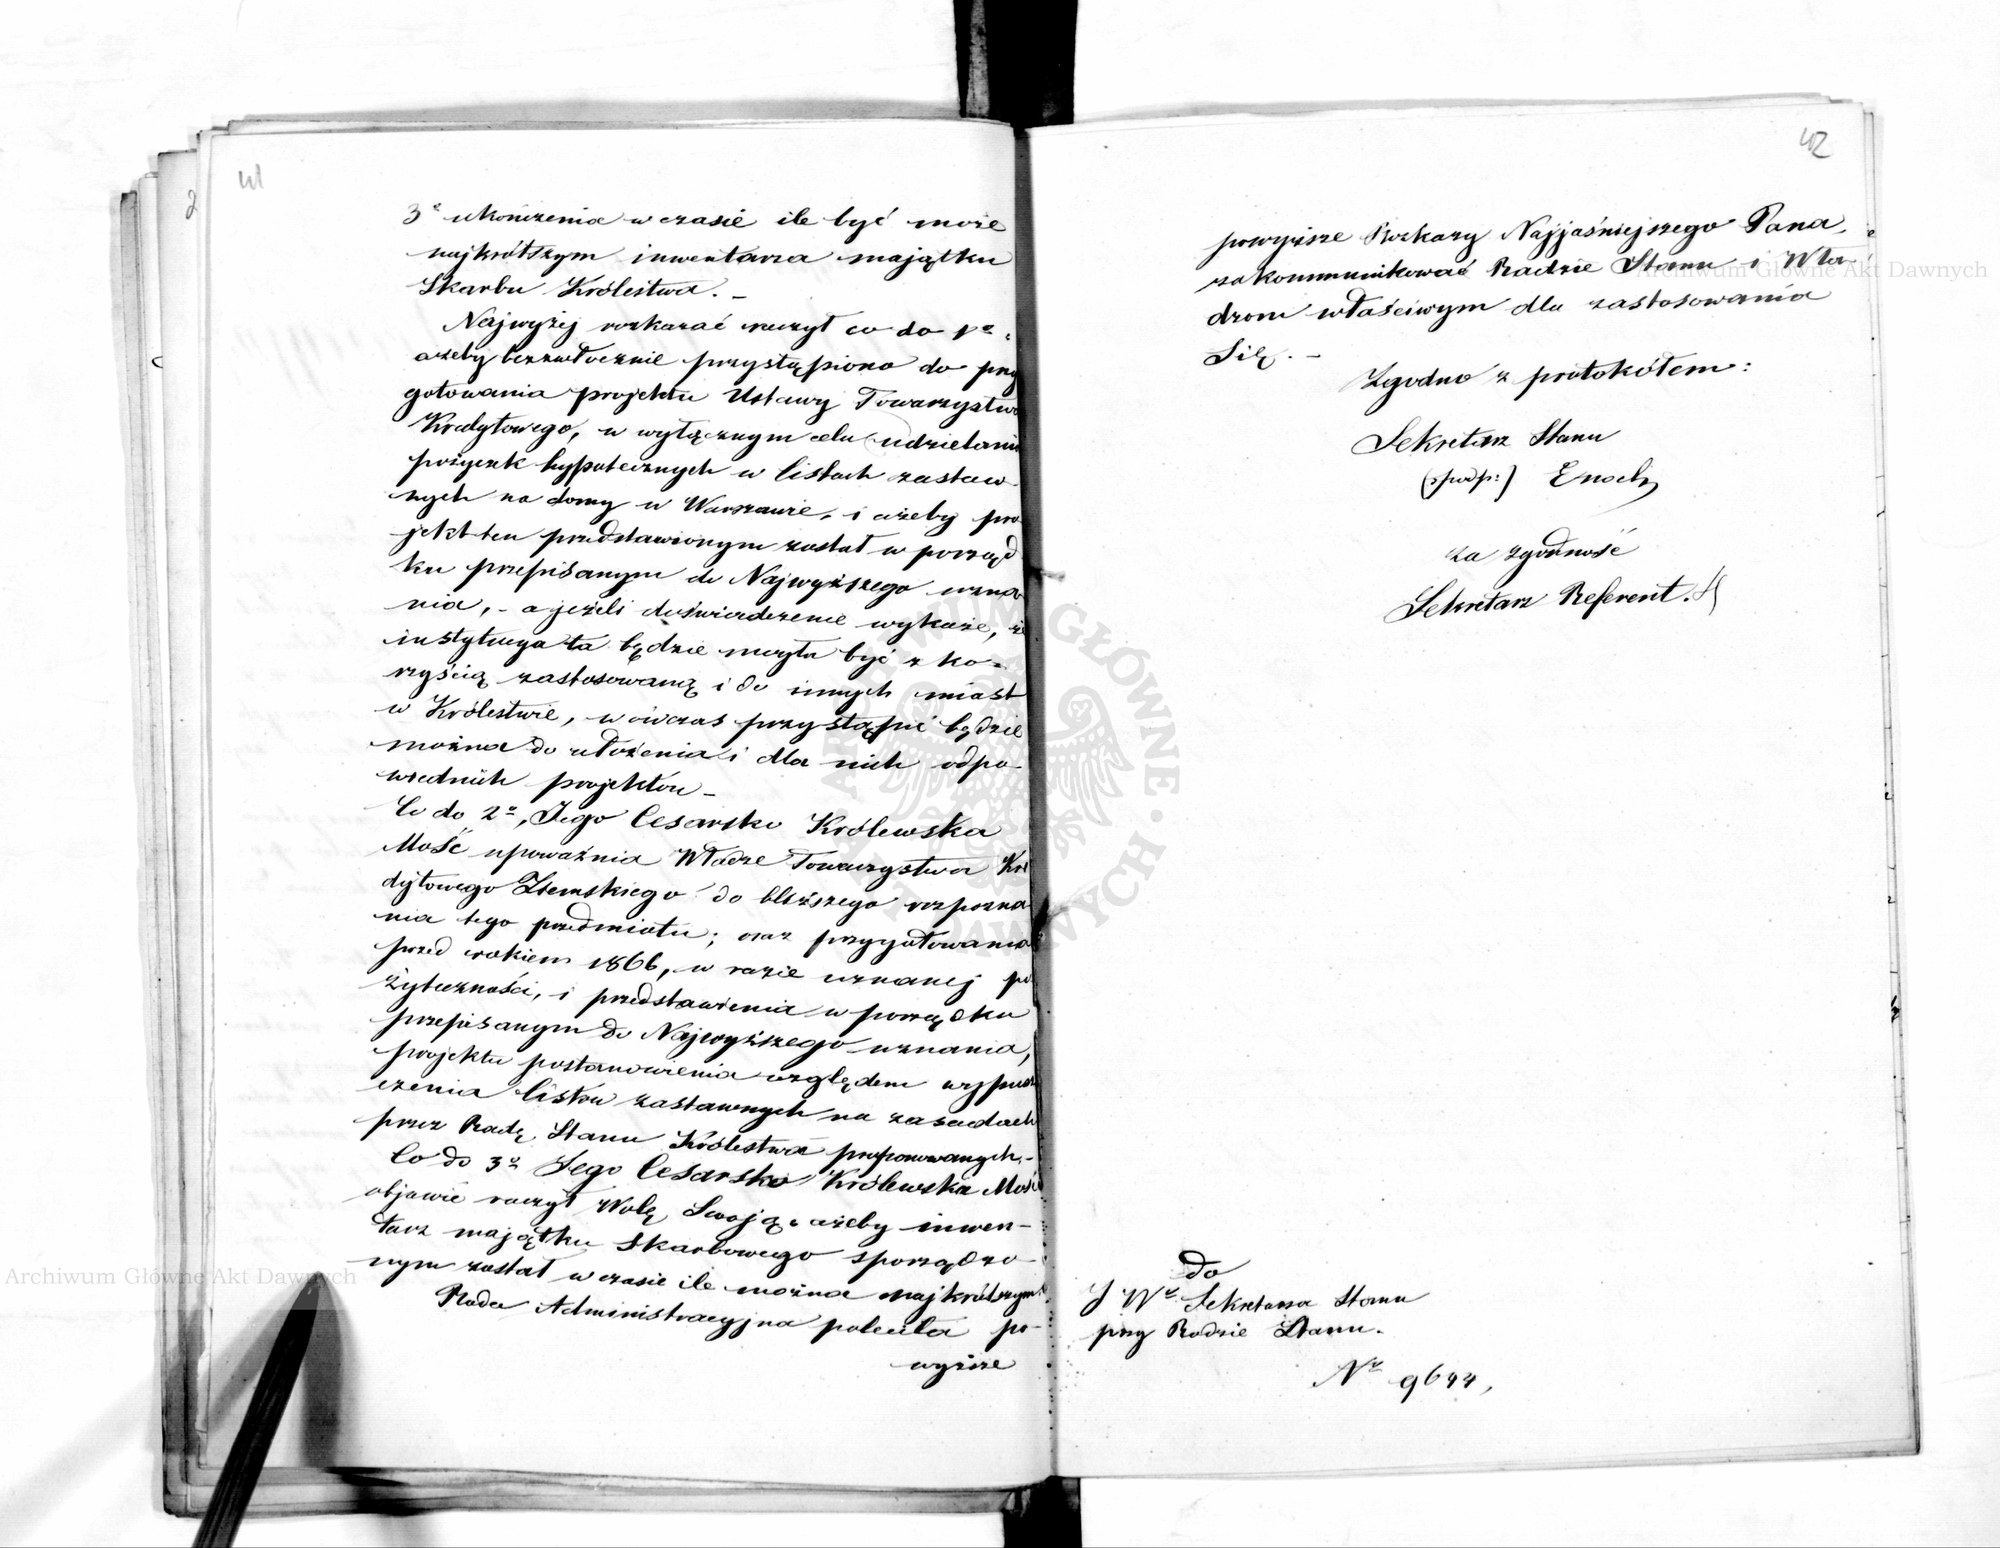 41
3º ukończenia w czasie ile być może
najkrótszym inwentarza majątku
Skarbu Królestwa. –
Najwyżej rozkazać raczył co do 1º,
ażeby bezzwłocznie przystąpiono do przy
gotowania projektu Ustawy Towarzystwa
Kredytowego, w wyłącznym celu udzielania
pożyczek hypotecznych w listach zastaw
nych na domy w Warszawie, i ażeby pro
jekt ten przedstawionym został w porząd
ku przepisanym do Najwyższego uzna
nia, – a jeżeli doświadczenie wykaże, że
instytucya ta będzie mogła być z ko-
rzyścią zastosowaną i do innych miast
w Królestwie, wówczas przystąpić będzie
można do ułożenia i dla nich odpo-
wiednich projektów –
Co do 2º, Jego Cesarsko Królewska
Mość upoważnia Władze Towarzystwa Kre
dytowego Ziemskiego do bliższego rozpozna
nia tego przedmiotu; oraz przygotowania
przed rokiem 1866, w razie uznanej po
żyteczności, i przedstawienia w porządku
przepisanym do Najwyższego uznania,
projektu postanowienia względem wypusz
czenia listów zastawnych na zasadach
przez Radę Stanu Królestwa proponowanych. –
Co do 3º Jego Cesarsko Królewska Mość
objawić raczył Wolę Swoją, ażeby inwen-
tarz majątku Skarbowego sporządzo-
nym został w czasie ile można najkrótszym.
Rada Administracyjna poleciła po-
wyższe
42
powyższe Rozkazy Najjaśniejszego Pana,
zakommunikować Radzie Stanu i Wła
dzom właściwym dla zastosowania
Się. –
Zgodno z protokółem:
Sekretarz Stanu
(podp:) Enoch
za zgodność
Sekretarz Referent.
do
J W° Sekretarza Stanu
przy Radzie Stanu.
N° 9644,
Archiwum Główne Akt Dawnych
Archiwum Główne Akt Dawnych
ARCHIWUM GŁÓWNE AKT DAWNYCH